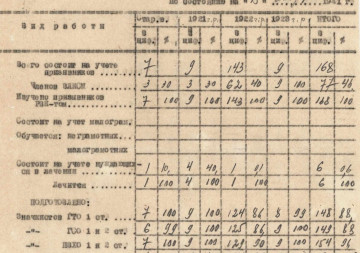 по состоянию на
Вид работы Старш.в. 1921г.р. 1922г.р. 1923г.р. ИТОГО
% % % % %
Всего состоит на учете призывников 7 9 143 9 168
Членов ВЛКСМ 3 30 3 30 62 40 9 100 77 48
7 100 9 100 143 100 9 100 168 100
Состоит на учет малограм.
Обучается: неграмотных
малограмотных
Состоит на учете нуждающих-
ся в лечении 1 10, 4 40, 1 01 6 06
Лечится 1 100 4 100 1 100 6 100
ПОДГОТОВЛЕНО:
Значкистов ГТО 1 ст. 7 100 9 100 124 86 8 99 148 88,
-"- ГТО 1 и 2 ст. 6 99 9 100 125 86 9 100 149 88,
-"- 1 и 2 ст. 7 100 9 100 129 90 9 100 154 96